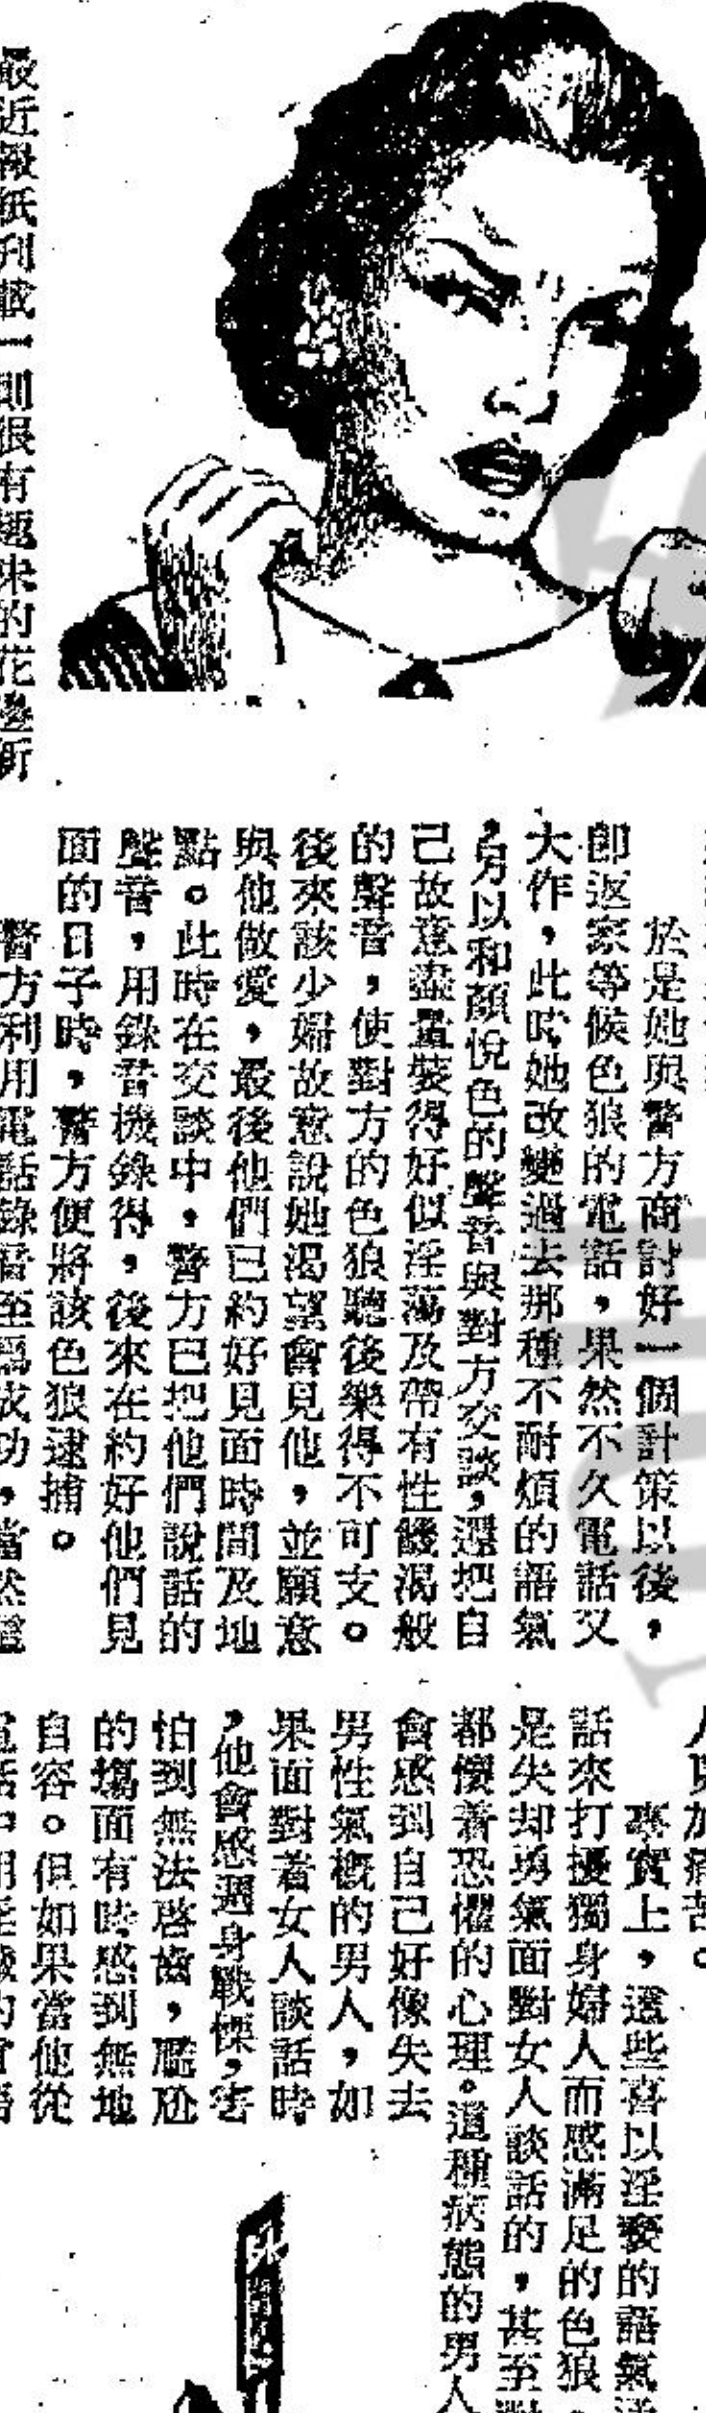 最近報紙刋載一則很有趣味的花邊新
於是她與警方商討好一個計策以後，
卽返家等候色狼的電話，果然不久電話又
大作，此時她改變過去那種不耐煩的語氣
，另以和顏悅色的聲音與對方交談，還把自
己故意盡量裝得好似淫蕩及帶有性饑渴般
的聲音，使對方的色狼聽後樂得不可支。
後來該少婦故意說她渴望會見他，並願意
與他做愛，最後他們已約好見面時間及地
點。此時在交談中，警方已把他們說話的
聲音，用錄音機錄得，後來在約好他們見
面的日子時，警方便將該色狼逮捕。
警方利用電話錄音至為成功，當然這
人更加痛苦。
事實上，這些喜以淫褻的語氣
話來打擾獨身婦人而感滿足的色狼，
是失却勇氣面對女人談話的，甚至對
都懷着恐懼的心理。這種病態的男人
會感到自己好像失去
男性氣概的男人，如
果面對着女人談話時
，他會感週身戰慄，害
怕到無法啓齒，尶尬
的塲面有時感到無地
自容。但如果當他從
電話中用淫